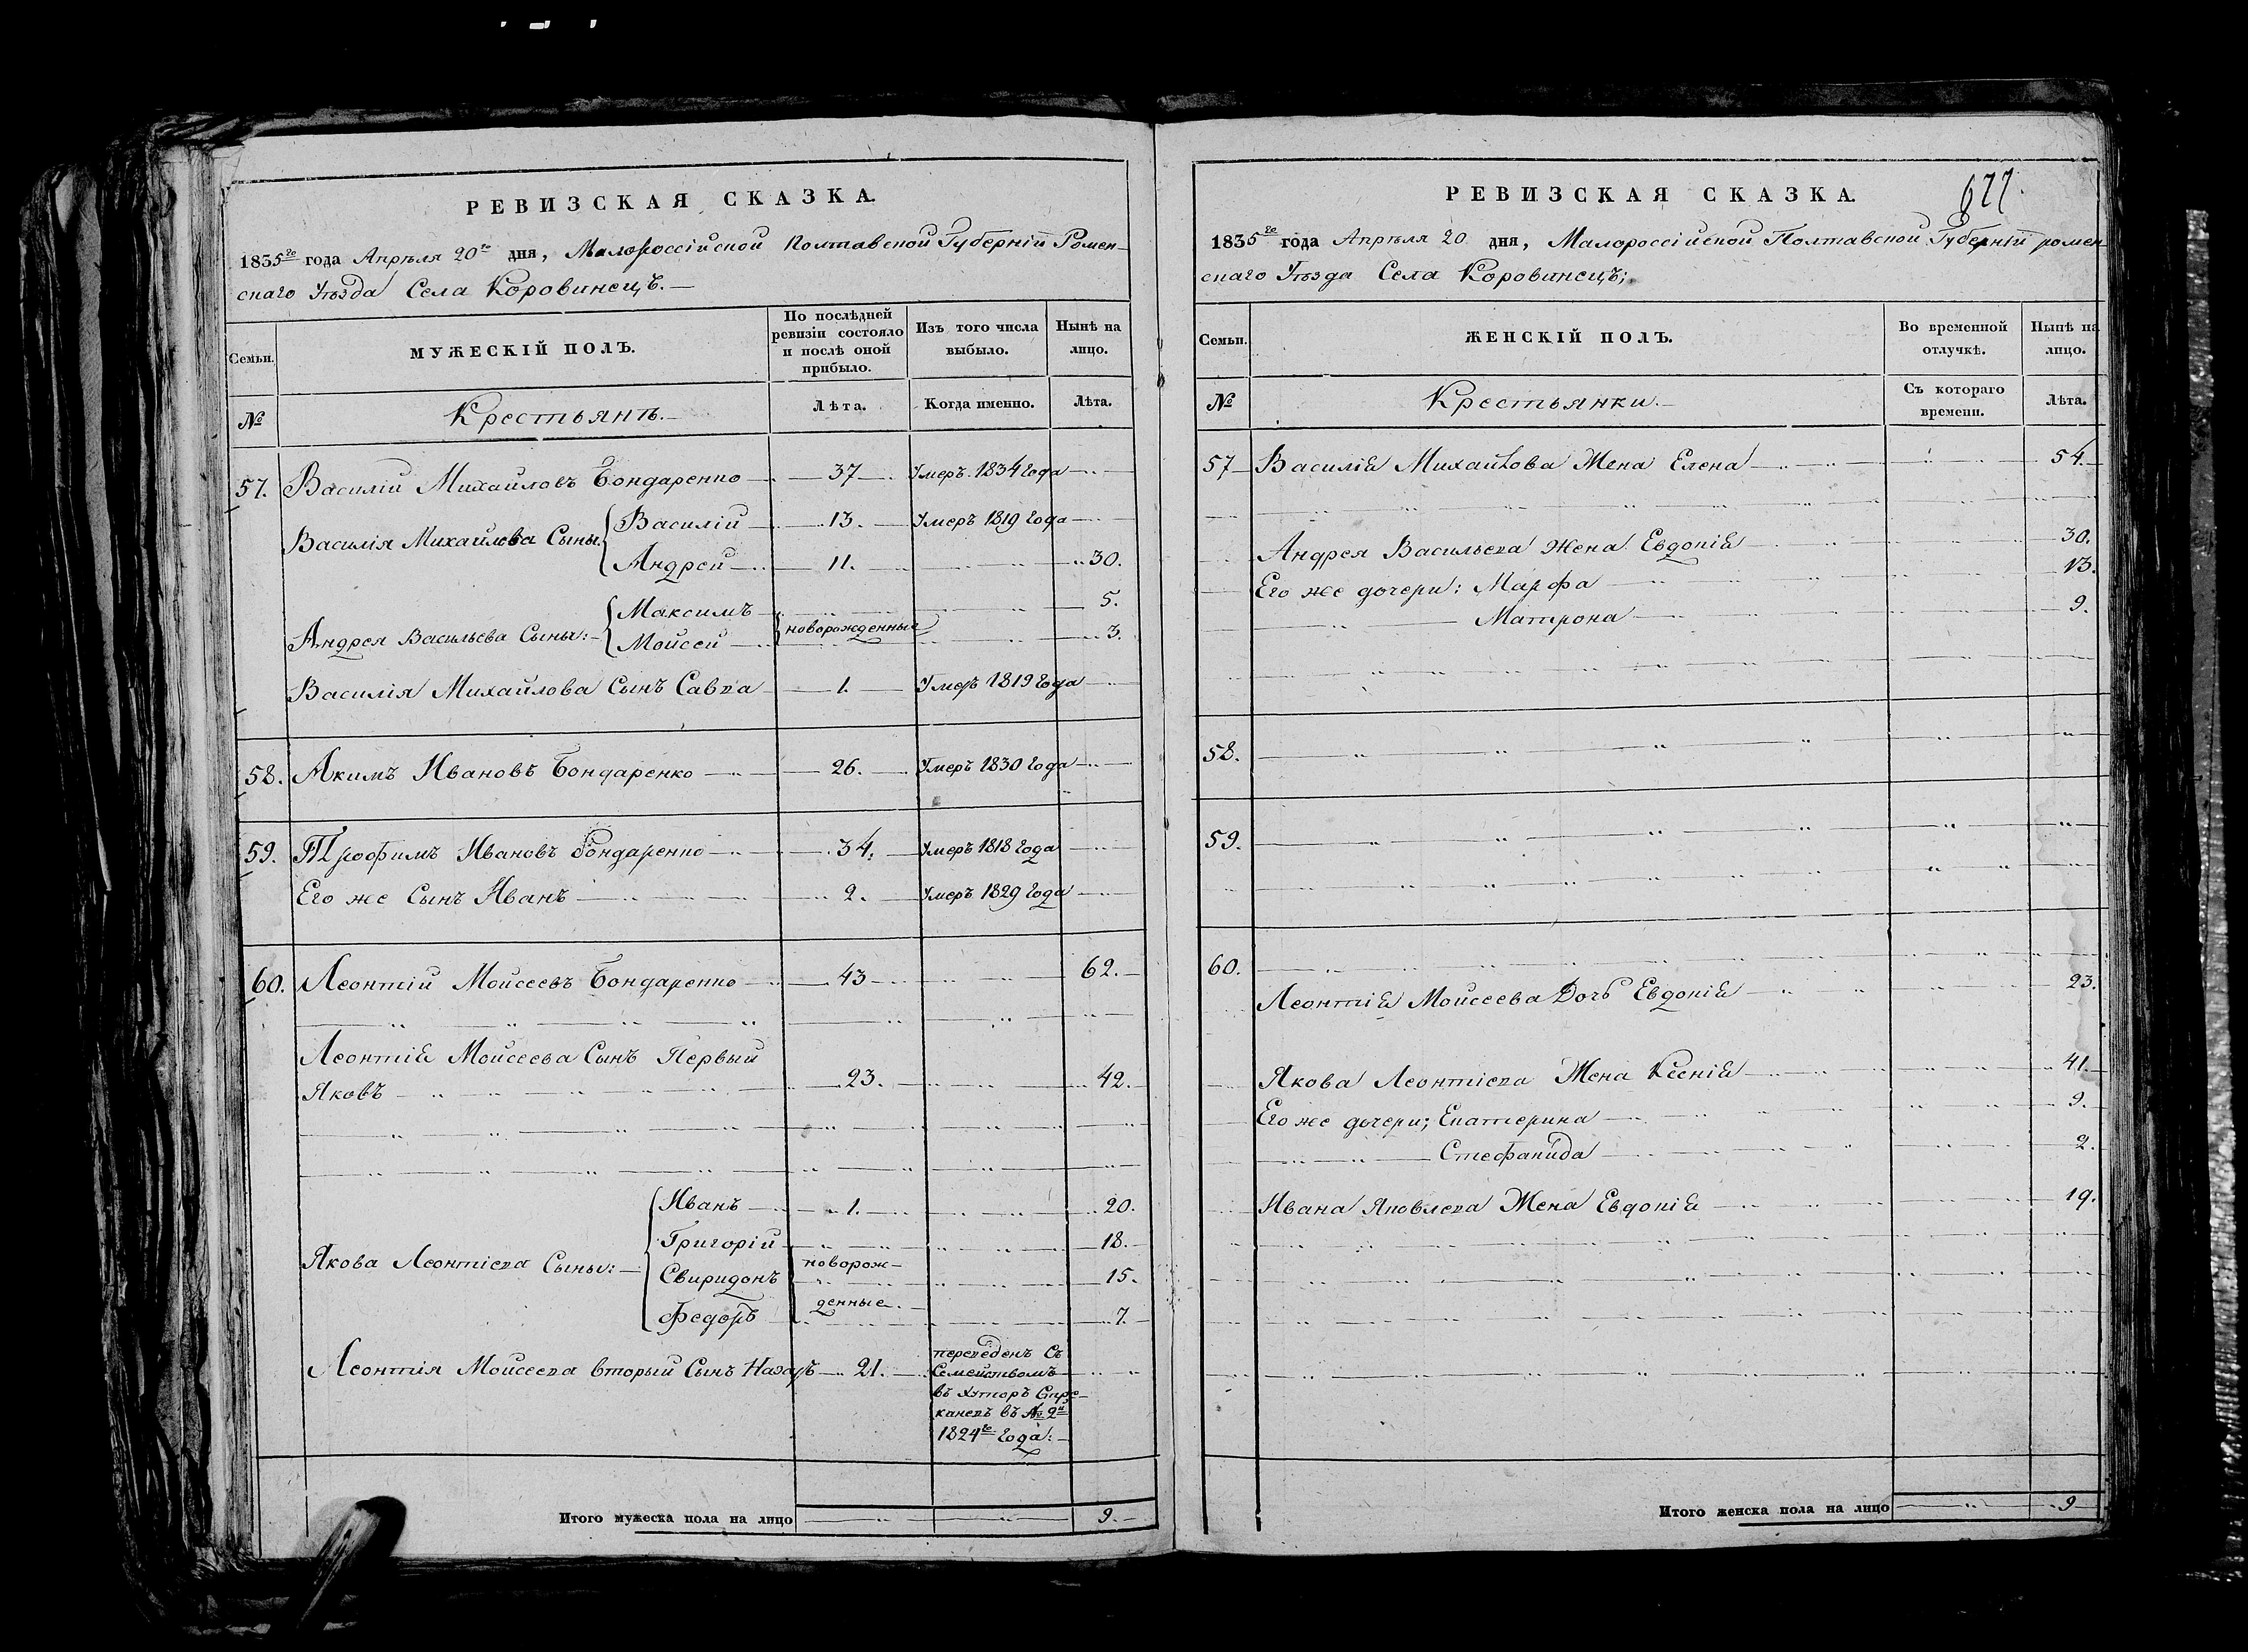 РЕВИЗСКАЯ СКАЗКА.
1835го года Апрѣля 20го дня, Малороссійской Полтавской Губерніи Ромен-
скаго Уѣзда Села Коровинецъ.
Семьи.
МУЖЕСКІЙ ПОЛЪ.
По послѣдней ревизіи состояло и послѣ оной прибыло.
Изъ того числа выбыло.
Нынѣ на лицо.
№
Крестьянѣ.
Лѣта.
Когда именно.
Лѣта.
57. Василій Михайловъ Бондаренко 37 Умеръ 1834 года
Василія Михайлова Сыны: Василій 13. Умеръ 1819 года
Андрей 11. 30.
Андрея Васильева Сыны: Максимъ новорожденные 5.
Мойсей 3.
Василія Михайлова Сынъ Савва 1. Умеръ 1819 года
58. Акимъ Ивановъ Бондаренко 26. Умеръ 1830 года
59. Трофимъ Ивановъ Бондаренко 34. Умеръ 1818 года
Его же Сынъ Иванъ 2. Умеръ 1829 года
60. Леонтій Мойсеевъ Бондаренко 43 62.
Леонтія Мойсеева Сынъ Первый
Яковъ 23. 42.
Иванъ 1. 20.
Григорій 18.
Якова Леонтіева Сыны: Свиридонъ новорож- 15.
Федоръ денные. 7.
Леонтія Мойсеева вторый Сынъ Назаръ 21. переведенъ Съ
Семействомъ
въ Хуторъ
въ № 9й
1824го года.
Итого мужеска пола на лицо 9.
677.
РЕВИЗСКАЯ СКАЗКА.
1835го года Апрѣля 20 дня, Малороссійской Полтавской Губерніи ромен
скаго Уѣзда Села Коровинецъ;
Семьи.
ЖЕНСКІЙ ПОЛЪ.
Во временной отлучкѣ.
Нынѣ на лицо.
№
Крестьянки.
Съ котораго времени.
Лѣта.
57 Василія Михайлова Жена Елена 54.
Андрея Васильева Жена Евдокія 30.
Его же дочери: Марфа 13.
Матрона 9.
58.
59.
60.
Леонтія Мойсеева Дочь Евдокія 23.
Якова Леонтіева Жена Ксенія 41.
Его же дочери; Екатерина 9.
Стефанида 2.
Ивана Яковлева Жена Евдокія 19.
Итого женска пола на лицо 9